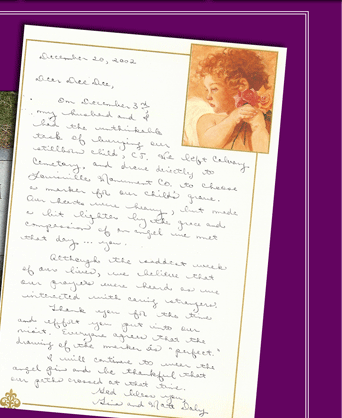 December 20, 2002
Dear Dee Dee,
On December 3rd
my husband and I
had the unthinkable
task of burying our
stillborn child, C.J. We left Calvary
Cemetary, and drove directly to
Louisville Monument Co. to choose
a marker for our child's grave.
Our hearts were heavy, but made
a bit lighter by the grace and
compassion of an angel we met
that day, ... you.
Although the saddest week
of our lives, we believe that
our prayers were heard as we
interacted with caring strangers.
Thank you for the time
and effort you put into our
visit. Everyone agrees that the
drawing of the marker is "perfect."
I will continue to wear the
angel pins and be thankful that
our paths crossed at that time.
God bless you,
and Nate